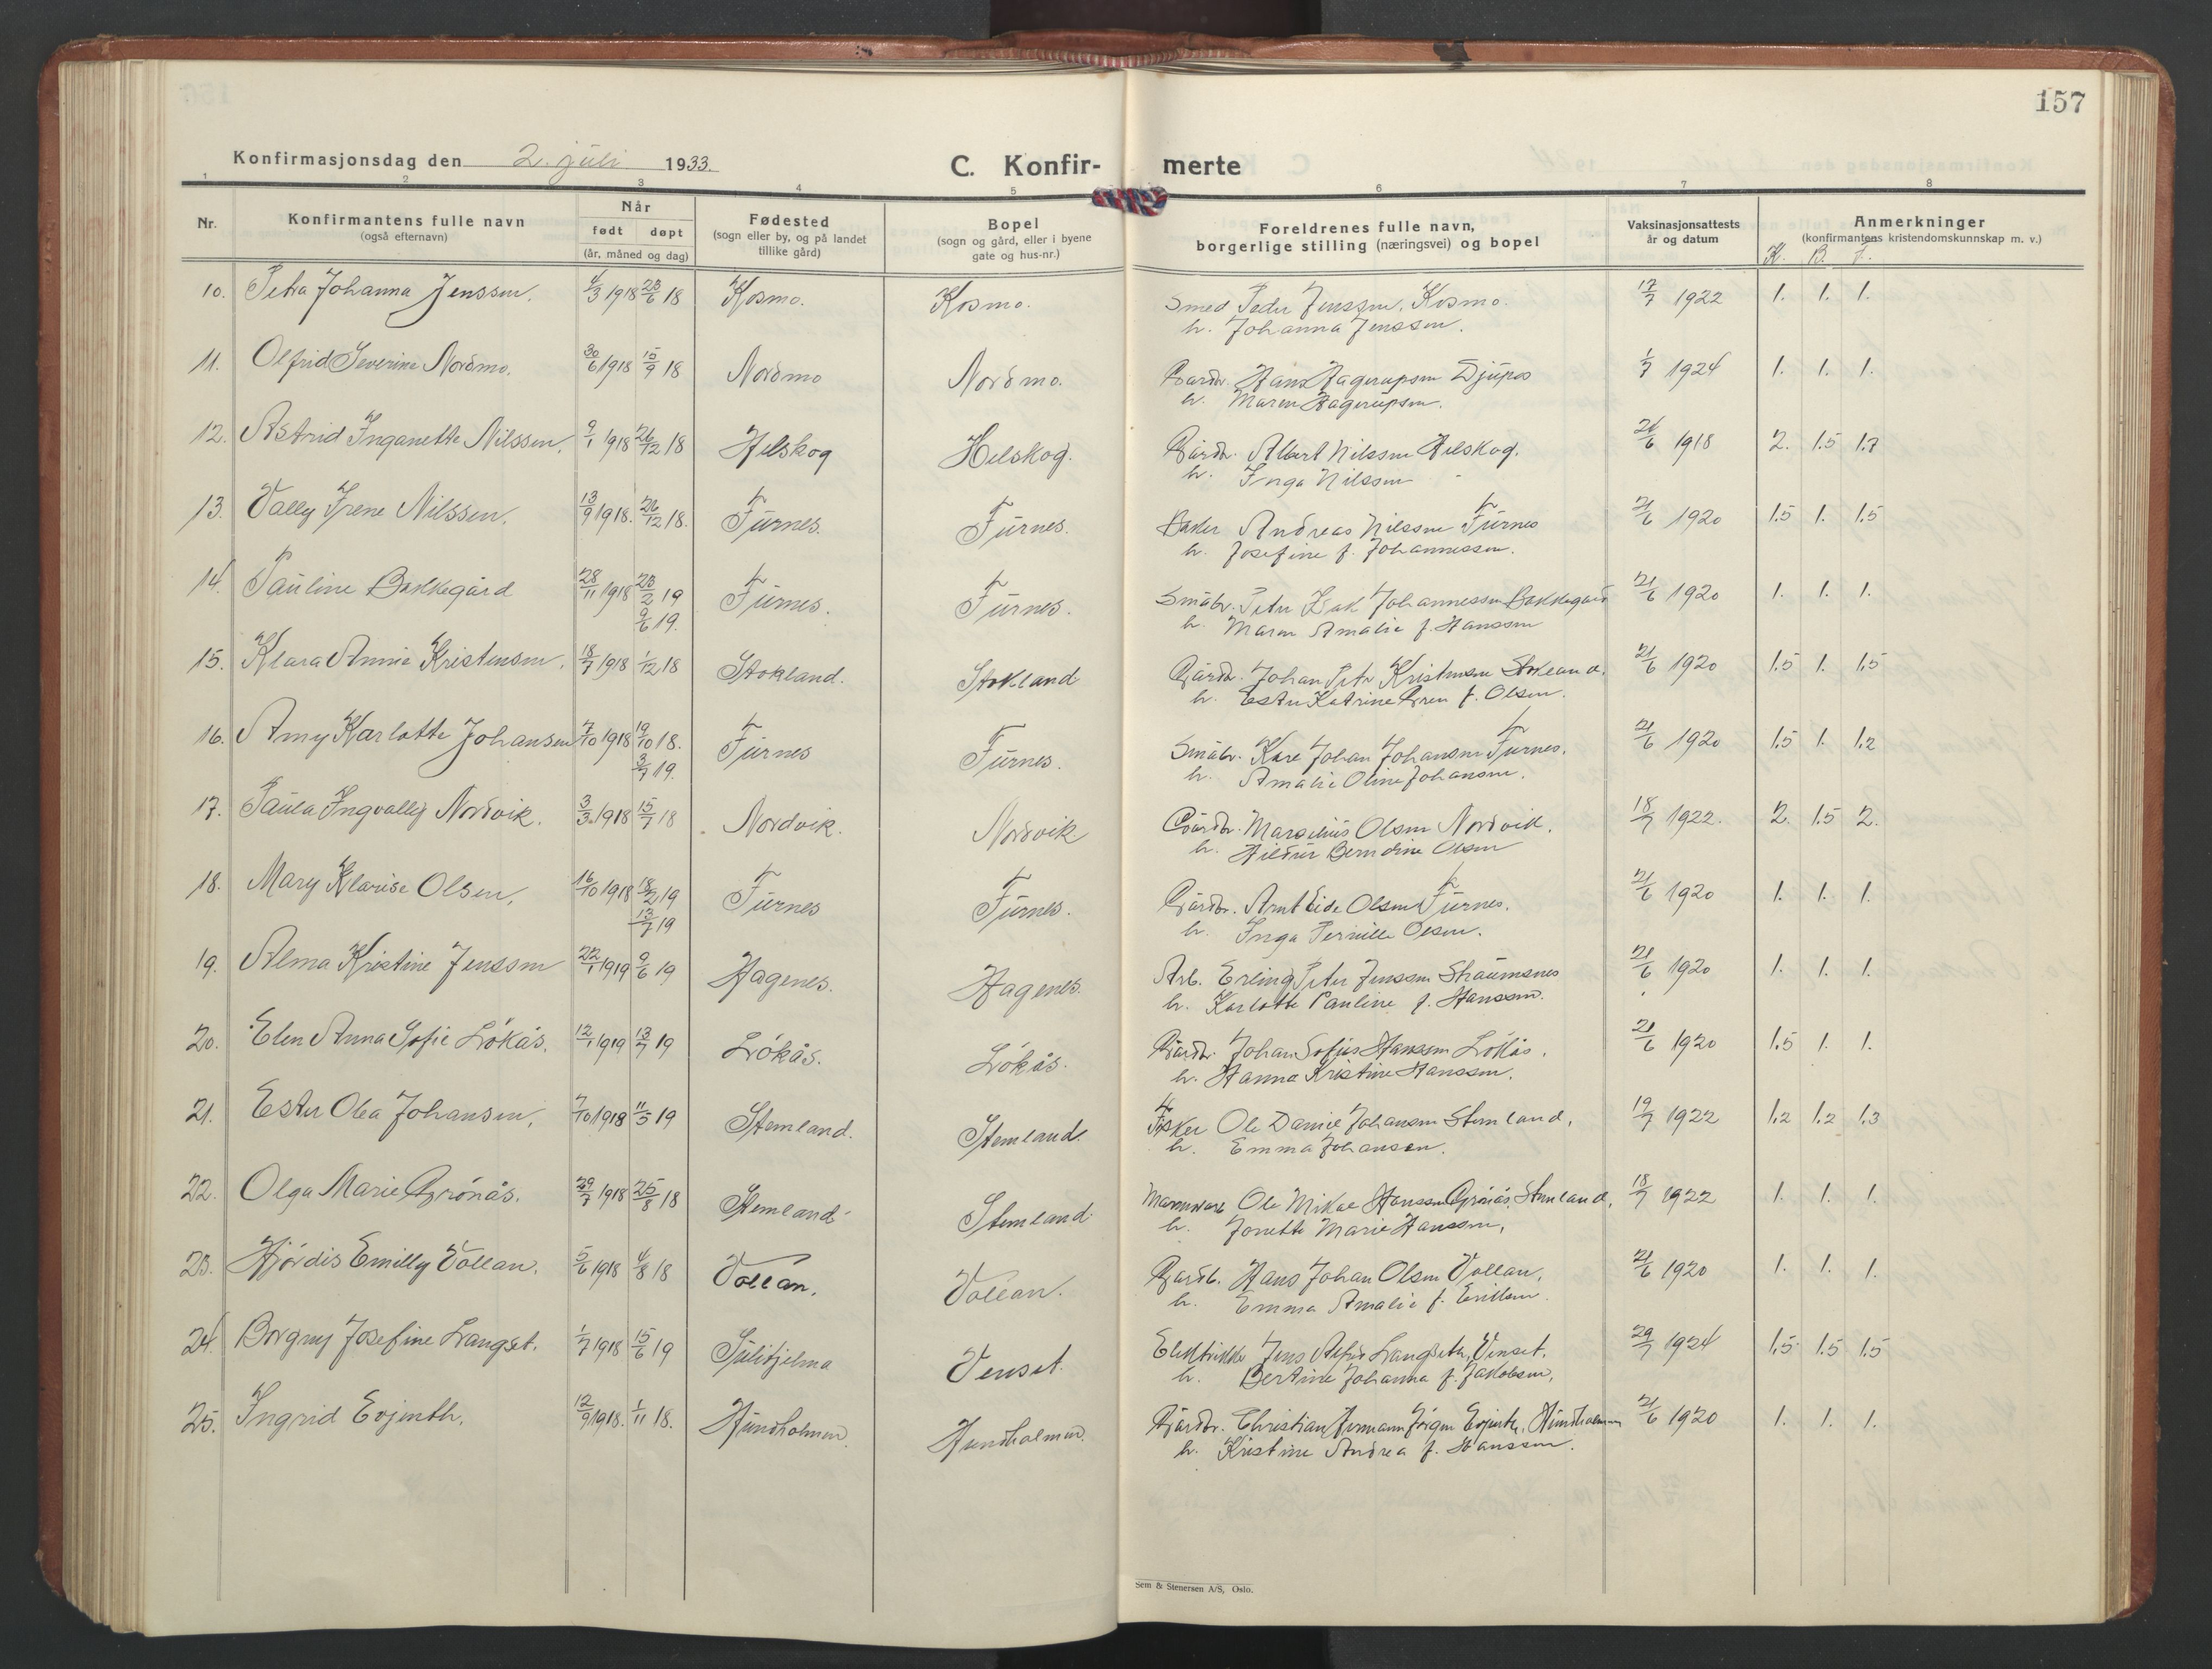 157
Konfirmasjonsdag den 2. juli 1933.
C. Konfir- merte
1 2 3 4 5 6 7 8
Nr.
Konfirmantens fulle navn
(også efternavn)
Når
født døpt
(år, måned og dag)
Fødested
(sogn eller by, og på landet
tillike gård)
Bopel
(sogn og gård, eller i byene
gate og hus-nr.)
Foreldrenes fulle navn,
borgerlige stilling (næringsvei) og bopel
Vaksinasjonsattests
år og datum
Anmerkninger
(konfirmantens kristendomskunnskap m. v.)
K. B. F.
10. Petra Johanna Jenssen. 4/3 1918 23/6 18 Kosmo. Kosmo. Smed Peder Jenssen, Kosmo. 17/7 1922 1. 1. 1.
h. Johanna Jenssen.
11. Olfrid Severine Nordmo. 30/6 1918 15/9 18 Nordmo Nordmo. Gårdbr. Hans Hagerupsen Djupos 1/7 1924 1. 1. 1.
h. Maren Hagerupsen.
12. Astrid Inganette Nilssen. 9/1 1918 26/12 18 Helskog Helskog. Gårdbr. Albert Nilssen Helskog. 21/6 1918 2. 1.5 1.7
h. Inga Nilssen
13. Vally Irene Nilssen. 13/9 1918. 26/12 18. Furnes. Furnes. Baker Andreas Nilssen Furnes 21/6 1920 1.5 1. 1.5
h. Josefine f. Johannessen.
14. Pauline Bakkegård 28/11 1918 23/2 19 Furnes. Furnes. Småbr. Peter Isak Johannessen Bakkegård 21/6 1920 1. 1. 1.
9/6 19.
h. Maren Amalie f. Hanssen
15. Klara Annie Kristensen. 18/7 1918 1/12 18 Stokland. Stokland Gårdbr. Johan Peter Kristensen Stokland. 21/6 1920 1.5 1. 1.5
h. Ester Katrine Gren f. Olsen.
16. Amy Karlotte Johansen 7/10 1918 19/10 18. Furnes Furnes. Småbr. Kare Johan Johansen Furnes. 21/6 1920 1.5 1. 1.2
3/7 19.
h. Amalie Oline Johansen.
17. Paula Ingvally Nordvik. 3/3 1918 15/7 18 Nordvik. Nordvik Gårdbr. Marselius Olsen Nordvik. 18/7 1922. 2. 1.5 2.
h. Hildur Berndine Olsen
18. Mary Klarise Olsen. 16/10 1918 18/2 19 Furnes Furnes. Gårdbr. Arnt Eide Olsen Furnes. 21/6 1920 1. 1. 1.
13/7 19
h. Inga Pernille Olsen.
19. Alma Kristine Jenssen 22/1 1919 9/6 19 Hagenes. Hagenes. Arb. Erling Peter Jenssen Straumsnes 21/6 1920 1. 1. 1.
h. Karlotte Pauline f. Hanssen.
20. Elen Anna Sofie Løkås. 12/1 1919 13/7 19 Løkås. Løkås. Gårdbr. Johan Sofus Hanssen Løkås. 21/6 1920 1.5 1. 1.
h. Hanna Kristine Hanssen.
21. Ester Olea Johansen. 7/10 1918 11/5 19 Stemland. Stemland. Fisker Ole Daniel Johansen Stemland. 19/7 1922 1.2 1.2 1.3
h. Emma Johansen.
22. Olga Marie Grønås. 29/7 1918 25/8 18 Stemland Stemland Ole Mikal Hanssen Grønås, Stemland. 18/7 1922 1. 1. 1.
h. Jonette Marie Hanssen.
23. Hjørdis Emilly Vollan. 5/6 1918 4/8 18 Vollan. Vollan. Gårdb. Hans Johan Olsen Vollan. 21/6 1920 1. 1. 1.
h. Emma Amalie f. Eriksen.
24. Borgny Josefine Langset. 1/7 1918 15/6 19 Sulitjelma Venset. Elektrikker Jens Alfred Langseth, Venset. 29/7 1924 1.5 1.5 1.5
h. Bertine Johanna f. Jakobsen.
25. Ingrid Evjenth. 12/9 1918. 1/11 18. Hundholmen. Hundholmen. Gårdbr. Christian Hermann Jørgen Evjenth, Hundholmen 21/6 1920 1. 1. 1.
h. Kristine Andrea f. Hanssen.
Sem & Stenersen A/S, Oslo.